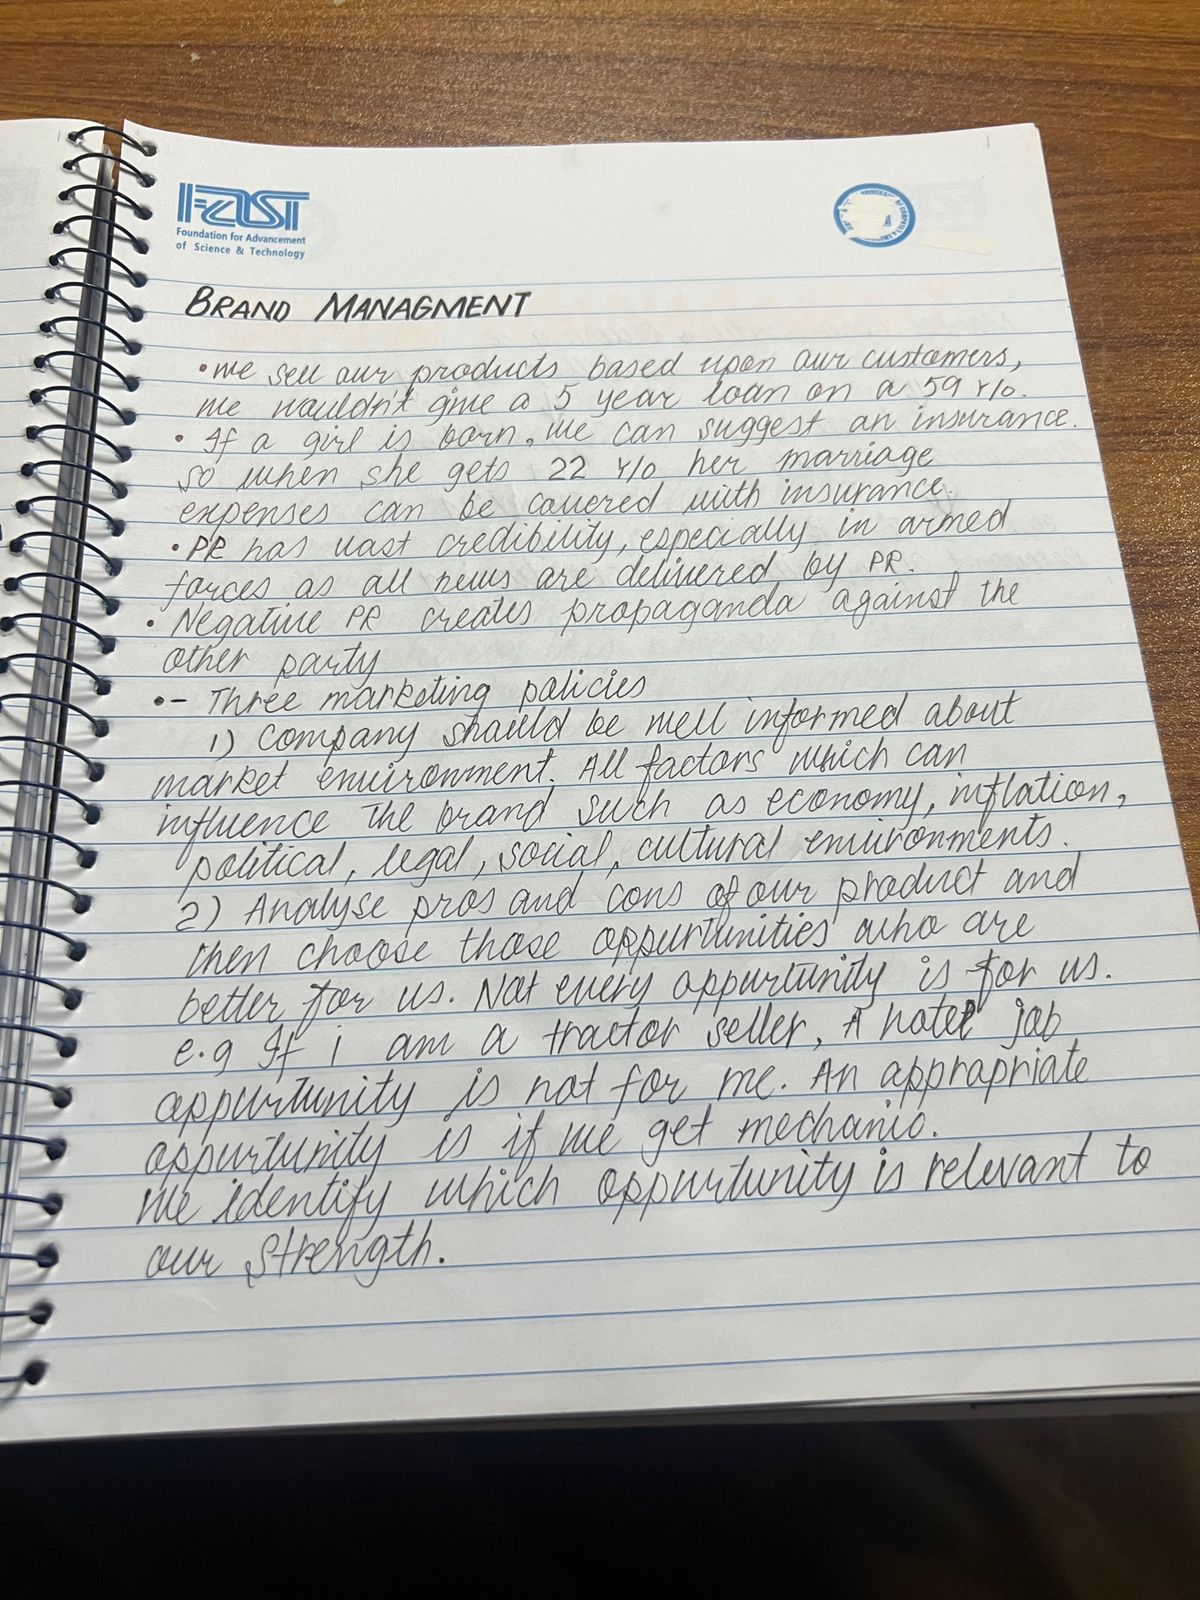 FAST
Foundation for Advancement
of Science & Technology
BRAND MANAGMENT
• we sell our products based upon our customers,
we wouldn't give a 5 year loan on a 59 Y/o.
• If a girl is born, we can suggest an insurance.
so when she gets 22 Y/o her marriage
expenses can be covered with insurance.
• PR has vast credibility, especially in armed
forces as all news are delivered by PR.
• Negative PR creates propaganda against the
other party
•- Three marketing policies
1) Company should be well informed about
market environment. All factors which can
influence the brand such as economy, inflation,
political, legal, social, cultural environments.
2) Analyse pros and cons of our product and
then choose those oppurtunities who are
better for us. Not every oppurtunity is for us.
e.g If i am a tractor seller, A hotel job
oppurtunity is not for me. An appropriate
oppurtunity is if we get mechanic.
we identify which oppurtunity is relevant to
our strength.